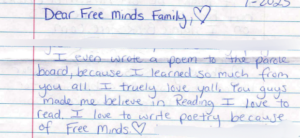 -2025
Dear Free Minds Family, ♡
I even wrote a poem to the parole
board, because I learned so much from
you all. I truely love yall. You guys
made me believe in Reading I love to
read. I love to write poetry because
of Free Minds ♡